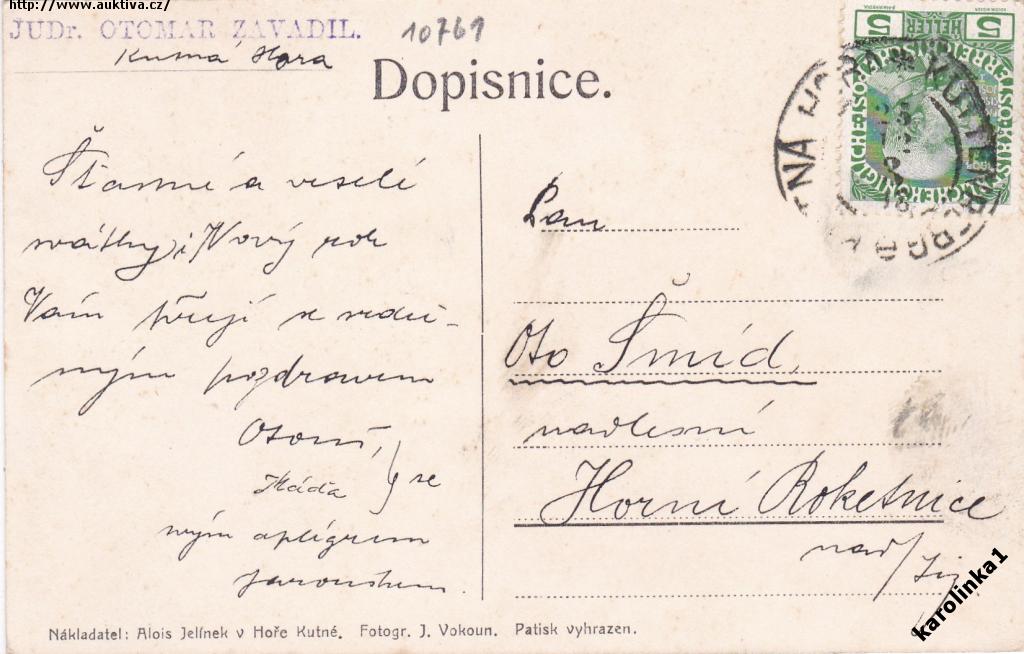 http://www.auktiva.cz/
JUDr. OTOMAR ZAVADIL.
Kutná Hora
10761
Dopisnice.
5 HELLER 5
Šťastné a veselé
svátky i Nový rok
Vám přejí se srdeč-
ným pozdravem
Otouš,
Máďa } se
svým
Jarouškem.
Pan
Oto Šmíd,
nadlesní
Horní Roketnice
nad/Jiz
KUTTENBERG
Nákladatel: Alois Jelínek v Hoře Kutné. Fotogr. J. Vokoun. Patisk vyhrazen.
karolinka1